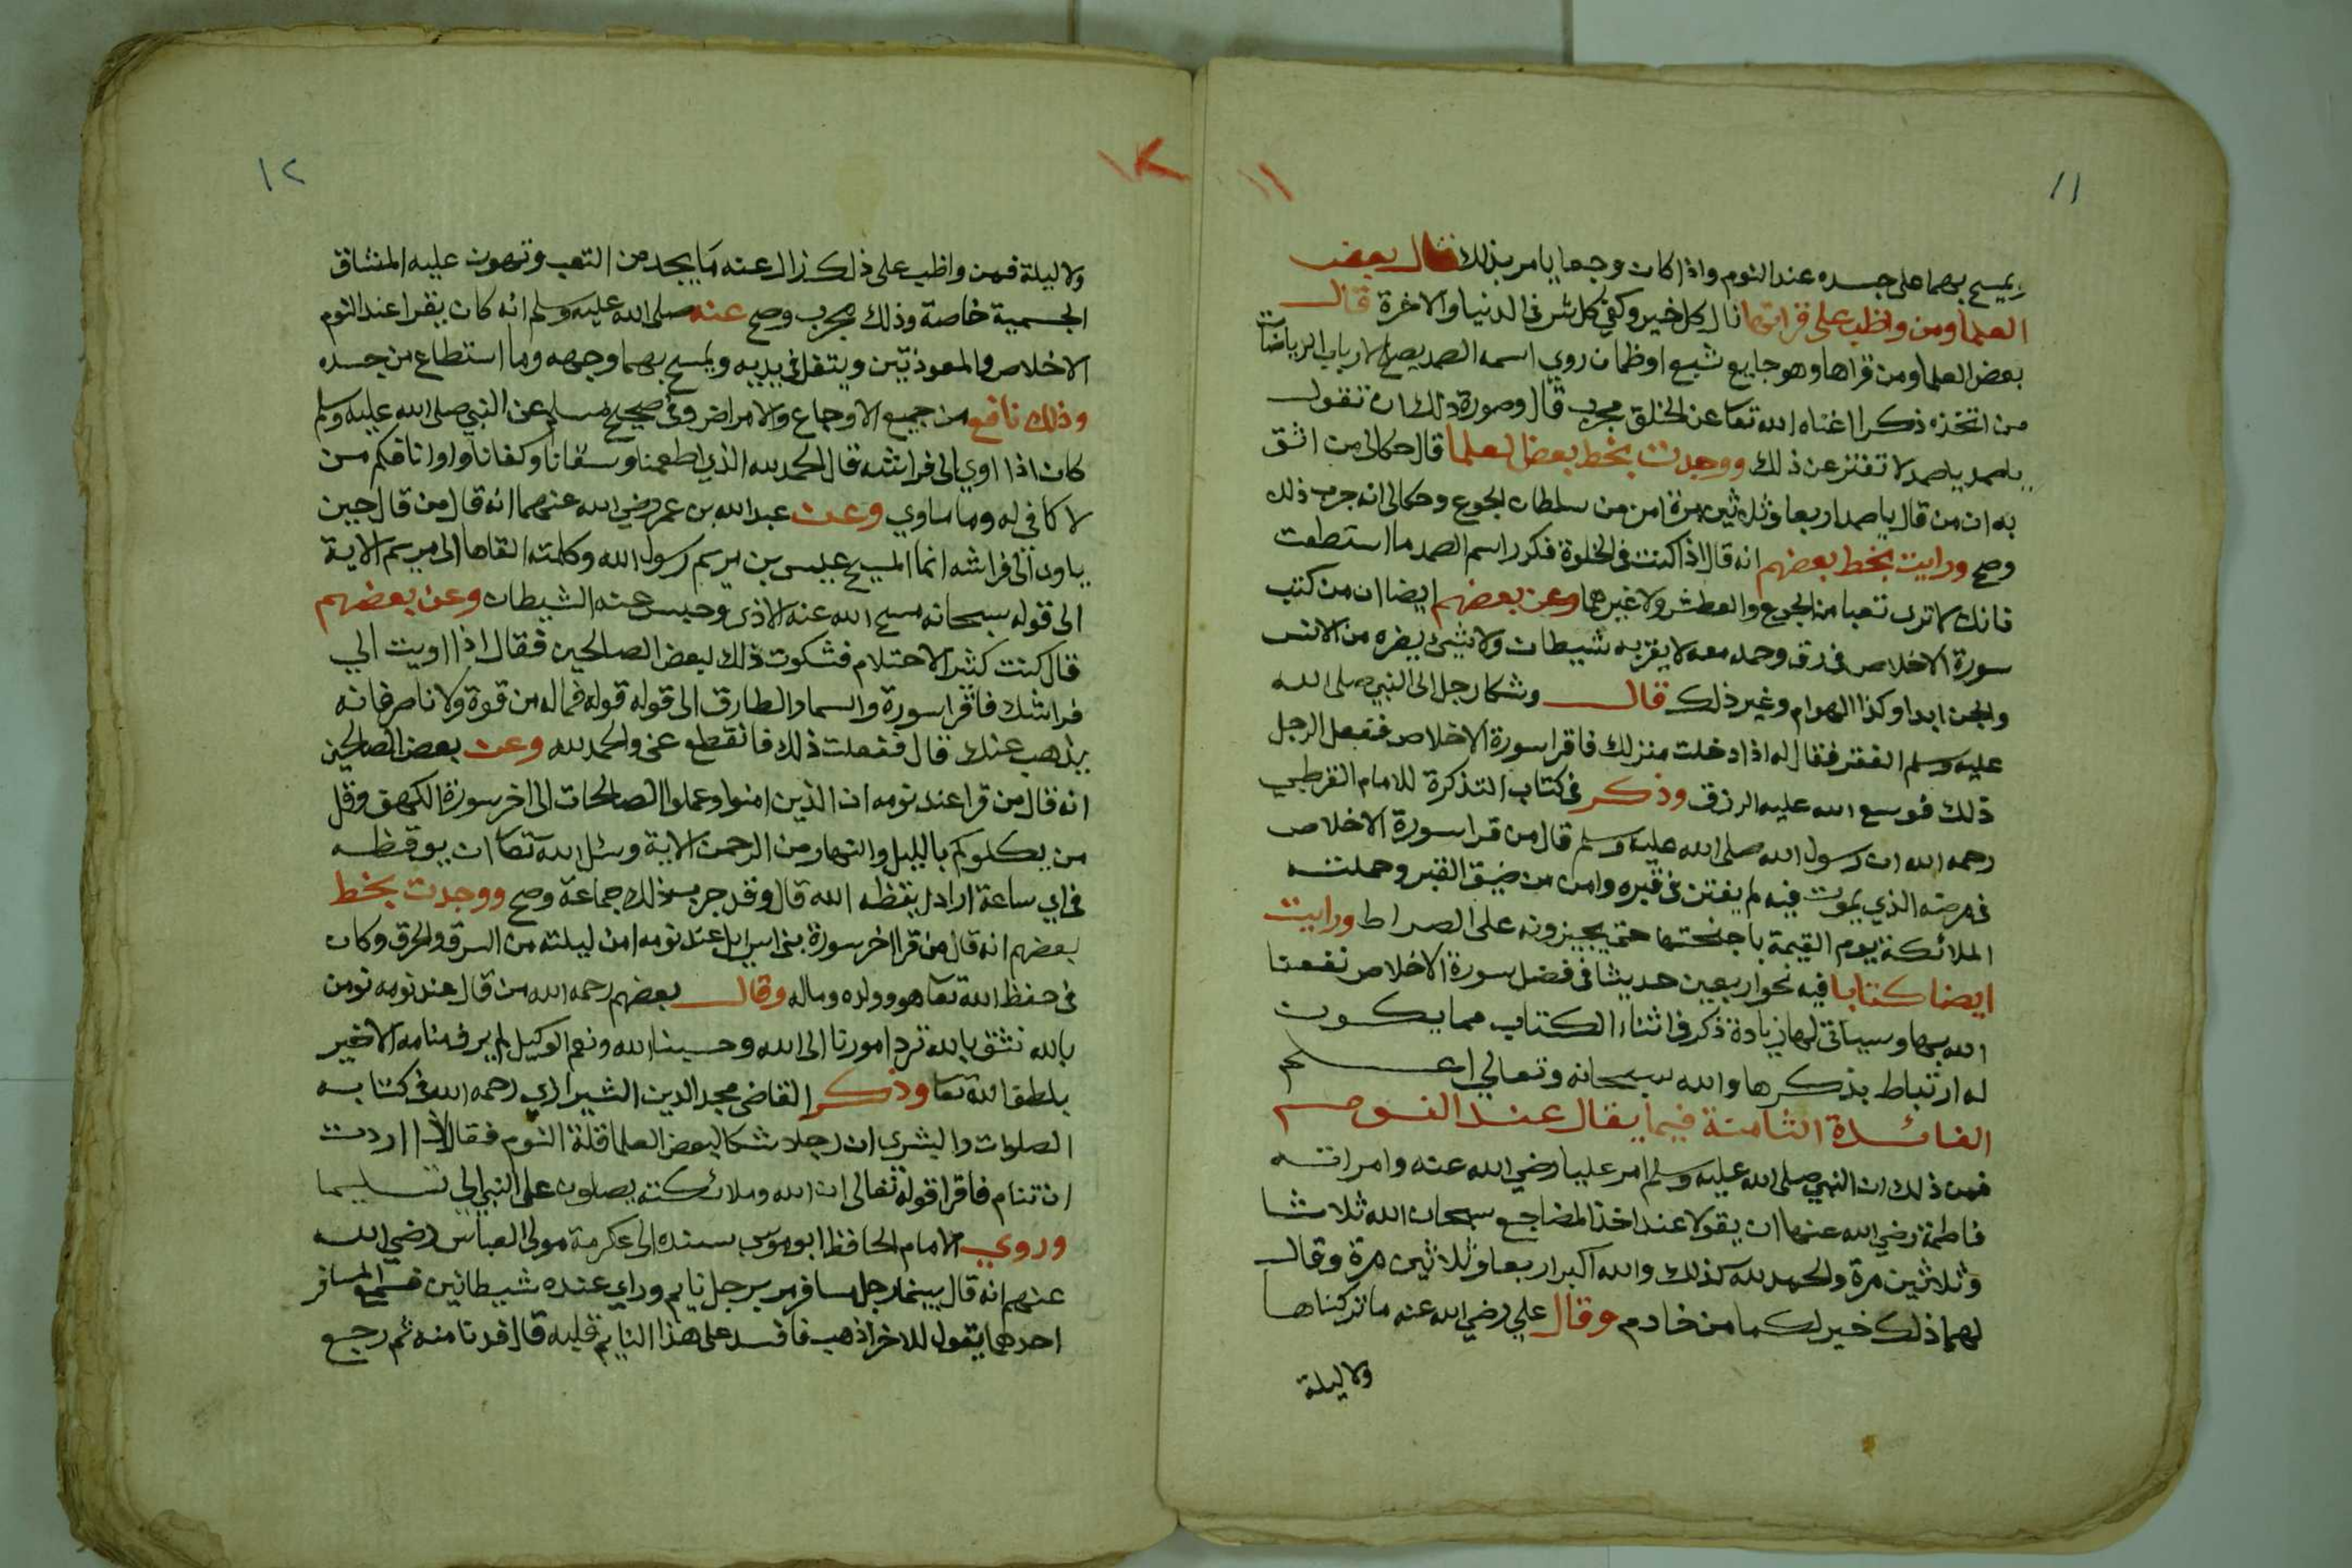 ١١
ويمسح بهما على جسده عند النوم واذا كان وجعا يامر بذلك قال بعض
العلما ومن واظب على قراتها نال كل خير وكفي كل شر في الدنيا والاخرة قال
بعض العلما ومن قراها وهو جايع شبع او ظمان روي اسمه الصمد يصلح لارباب الرياضات
من اتخذه ذكرا اغناه الله تعا عن الخلق مجرب قال وصورة ذلك ان تقول
يا صمد يا صمد لا تفتر عن ذلك ووجدت بخط بعض العلما قال حكالي من اثق
به ان من قال يا صمد اربعا وثلاثين مرة امن من سلطان الجوع وحكالي انه جرب ذلك
وصح ورايت بخط بعضهم انه قال اذا كنت في الخلوة فكرر اسم الصمد ما استطعت
فانك لا ترى تعبا من الجوع والعطش ولا غيرهما وعن بعضهم ايضا ان من كتب
سورة الاخلاص في رق وحمله معه لا يقربه شيطان ولا شيئ يضره من الانس
والجن ابدا وكذا الهوام وغير ذلك قال وشكا رجل الى النبي صلى الله
عليه وسلم الفقر فقال له اذا دخلت منزلك فاقرا سورة الاخلاص ففعل الرجل
ذلك فوسع الله عليه الرزق وذكر في كتاب التذكرة للامام القرطبي
رحمه الله ان رسول الله صلى الله عليه وسلم قال من قرا سورة الاخلاص
في مرضه الذي يموت فيه لم يفتن في قبره وامن من ضيق القبر وحملته
الملائكة يوم القيمة باجنحتها حتى يجيزونه على الصراط ورايت
ايضا كتابا فيه نحو اربعين حديثا في فضل سورة الاخلاص نفعنا
الله بها وسياتي لها زيادة ذكر في اثناء الكتاب مما يكون
له ارتباط بذكرها والله سبحانه وتعالي اعلم
الفائدة الثامنة فيما يقال عند النوم
فمن ذلك ان النبي صلى الله عليه وسلم امر عليا رضي الله عنه وامراته
فاطمة رضي الله عنها ان يقولا عند اخذ المضاجع سبحان الله ثلاثا
وثلاثين مرة والحمد لله كذلك والله اكبر اربعا وثلاثين مرة وقال
لهما ذلك خير لكما من خادم وقال علي رضي الله عنه ما تركناها
ولا ليلة
١١
١٢
١٢
ولا ليلة فمن واظب على ذلك زال عنه ما يجد من التعب وتهون عليه المشاق
الجسمية خاصة وذلك مجرب وصح عنه صلى الله عليه وسلم انه كان يقرا عند النوم
الاخلاص والمعوذتين ويتفل في يديه ويمسح بهما وجهه وما استطاع من جسده
وذلك نافع من جميع الاوجاع والامراض وفي صحيح مسلم عن النبي صلى الله عليه وسلم
كان اذا اوي الى فراشه قال الحمد لله الذي اطعمنا وسقانا وكفانا واوانا فكم من
لا كافي له وما ماوي وعن عبد الله بن عمر رضي الله عنهما انه قال من قال حين
ياوي الى فراشه انما المسيح عيسى بن مريم رسول الله وكلمته القاها الى مريم الاية
الى قوله سبحانه مسح الله عنه الاذى وحبس عنه الشيطان وعن بعضهم
قال كنت كثير الاحتلام فشكوت ذلك لبعض الصالحين فقال اذا اويت الي
فراشك فاقرا سورة والسما والطارق الى قوله قوله فماله من قوة ولا ناصر فانه
يذهب عنك قال ففعلت ذلك فانقطع عني والحمد لله وعن بعض الصالحين
انه قال من قرا عند نومه ان الذين امنوا وعملوا الصالحات الى اخر سورة الكهف وقل
من يكلوكم بالليل والنهار من الرحمن الاية وسئل الله تعا ان يوقظه
في اي ساعة اراد ايقظه الله قال وقد جرب ذلك جماعة وصح ووجدت بخط
بعضهم انه قال من قرا اخر سورة بني اسرايل عند نومه امن ليلته من السرق والحرق وكان
في حفظ الله تعا هو وولده وماله وقال بعضهم رحمه الله من قال عند نومه نومن
بالله نثق بالله نرد امورنا الى الله وحسبنا الله ونعم الوكيل لم ير في منامه الا خير
بلطف الله تعا وذكر القاضي مجد الدين الشيرازي رحمه الله في كتابه
الصلوات والبشرى ان رجلا شكا لبعض العلما قلة النوم فقال اذا اردت
ان تنام فاقرا قوله تعالى ان الله وملائكته يصلون على النبي الي تسليما
وروي الامام الحافظ ابو موسى بسنده الى عكرمة مولى العباس رضي الله
عنهم انه قال بينما رجل مسافر مر برجل نايم وراي عنده شيطانين فسمع المسافر
احدهما يقول للاخر اذهب فافسد على هذا النايم قلبه قال فدنا منه ثم رجع